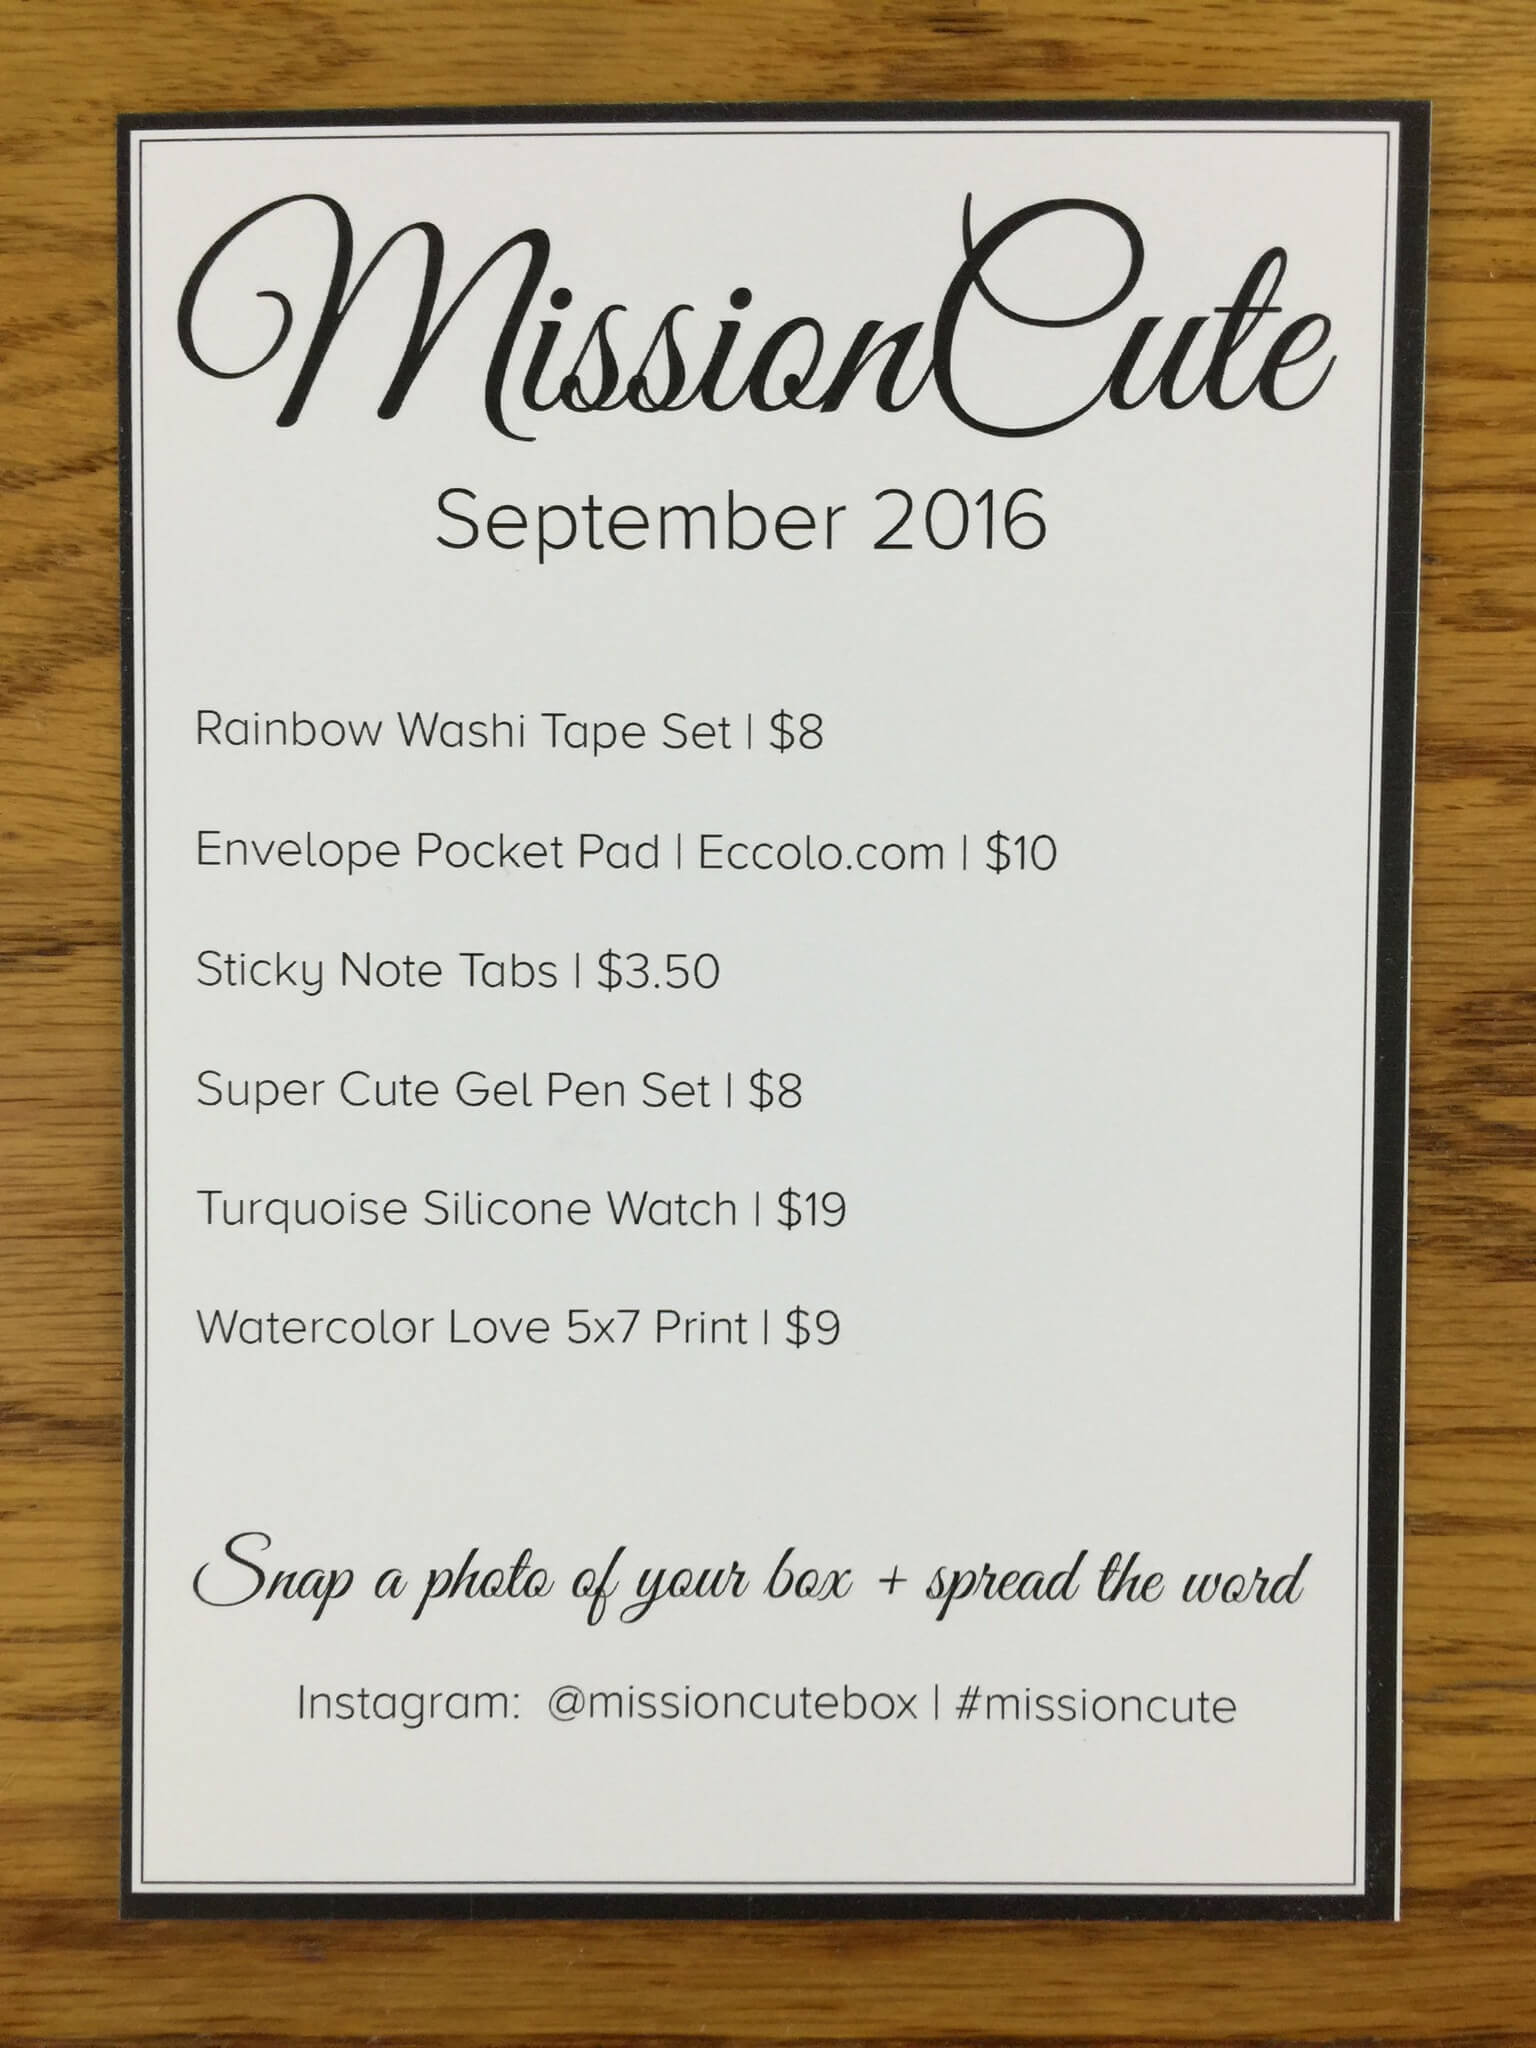 MissionCute
September 2016
Rainbow Washi Tape Set | $8
Envelope Pocket Pad | Eccolo.com | $10
Sticky Note Tabs | $3.50
Super Cute Gel Pen Set | $8
Turquoise Silicone Watch | $19
Watercolor Love 5x7 Print | $9
Snap a photo of your box + spread the word
Instagram: @missioncutebox | #missioncute